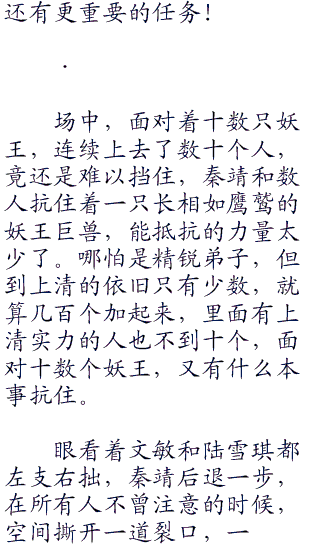 还有更重要的任务！
.
场中，面对着十数只妖
王，连续上去了数十个人，
竟还是难以挡住，秦靖和数
人抗住着一只长相如鹰鹫的
妖王巨兽，能抵抗的力量太
少了。哪怕是精锐弟子，但
到上清的依旧只有少数，就
算几百个加起来，里面有上
清实力的人也不到十个，面
对十数个妖王，又有什么本
事抗住。
眼看着文敏和陆雪琪都
左支右拙，秦靖后退一步，
在所有人不曾注意的时候，
空间撕开一道裂口，一